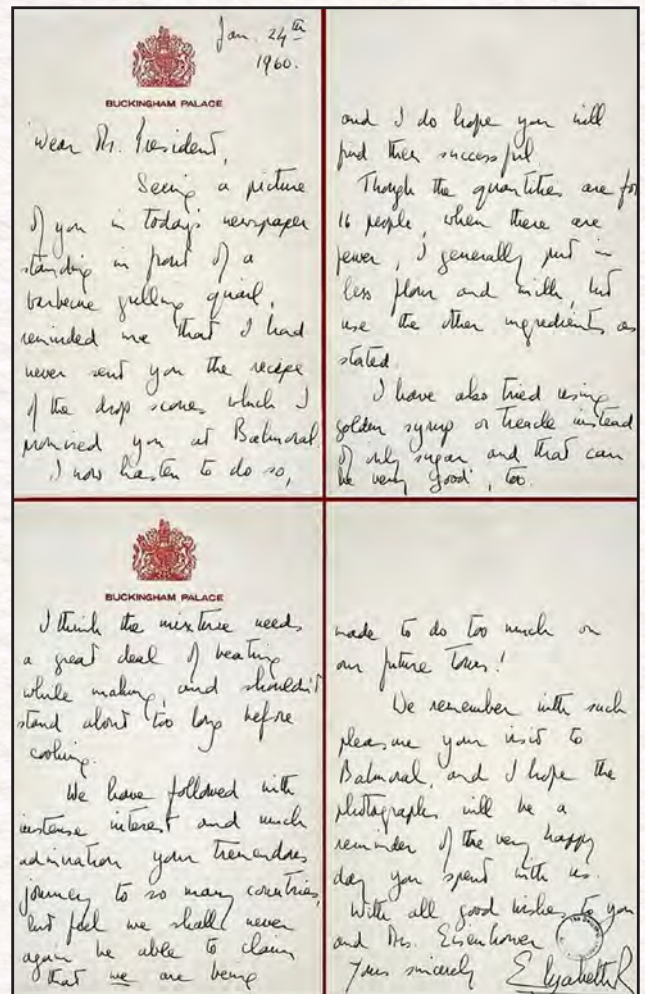 Jan. 24th
1960.
BUCKINGHAM PALACE
Dear Mr. President,
Seeing a picture
of you in today's newspaper
standing in front of a
barbecue grilling quail,
reminded me that I had
never sent you the recipe
of the drop scones which I
promised you at Balmoral.
I now hasten to do so,
and I do hope you will
find them successful.
Though the quantities are for
16 people, when there are
fewer, I generally put in
less flour and milk, but
use the other ingredients as
stated.
I have also tried using
golden syrup or treacle instead
of only sugar and that can
be very good, too.
BUCKINGHAM PALACE
I think the mixture needs
a great deal of beating
while making, and shouldn't
stand about too long before
cooking.
We have followed with
intense interest and much
admiration your tremendous
journey to so many countries,
but feel we shall never
again be able to claim
that we are being
made to do too much on
our future tours!
We remember with such
pleasure your visit to
Balmoral, and I hope the
photographs will be a
reminder of the very happy
day you spent with us.
With all good wishes to you
and Mrs. Eisenhower
Yours sincerely Elizabeth R